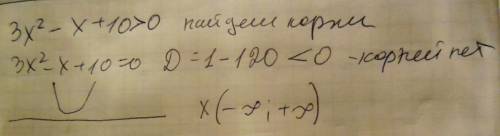 3x² - x + 10 > 0 найдем корни
3x² - x + 10 = 0 D = 1 - 120 < 0 - корней нет
x (-∞; +∞)